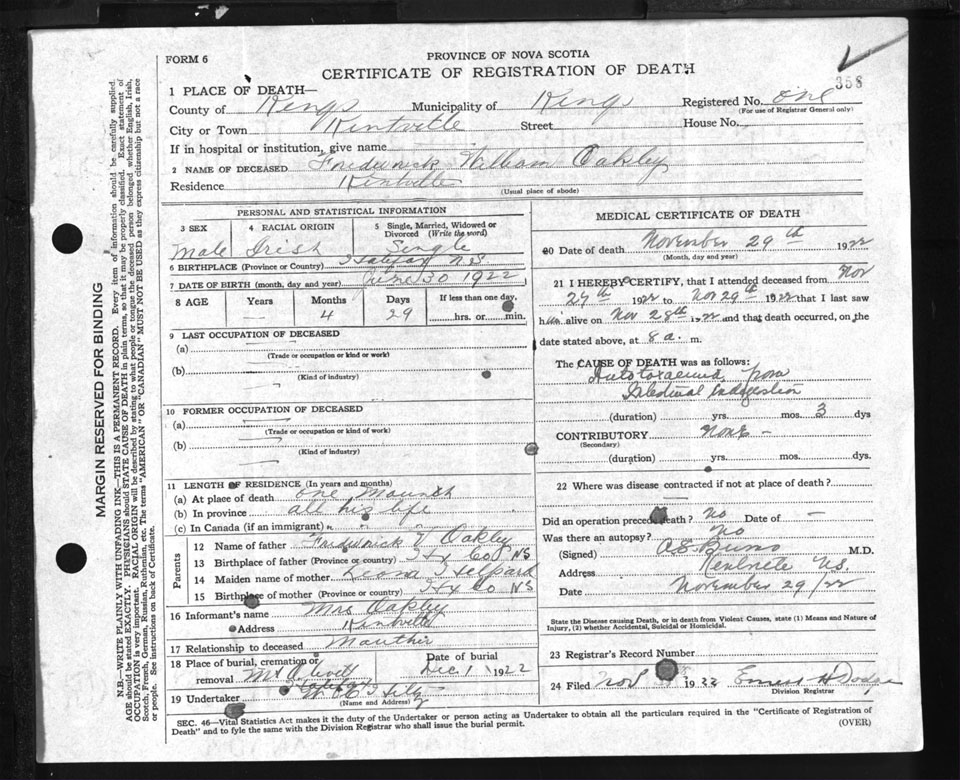 FORM 6
PROVINCE OF NOVA SCOTIA
CERTIFICATE OF REGISTRATION OF DEATH
358
1 PLACE OF DEATH—
County of Kings Municipality of Kings Registered No. one
(For use of Registrar General only)
City or Town Kentville Street House No.
If in hospital or institution, give name
2 NAME OF DECEASED Frederick William Oakley
Residence Kentville
(Usual place of abode)
PERSONAL AND STATISTICAL INFORMATION
3 SEX 4 RACIAL ORIGIN 5 Single, Married, Widowed or Divorced (Write the word)
Male Irish Single
6 BIRTHPLACE (Province or Country) Halifax N.S
7 DATE OF BIRTH (month, day and year) June 30 1922
8 AGE Years Months Days If less than one day,
— 4 29 hrs. or min.
9 LAST OCCUPATION OF DECEASED
(a)
(Trade or occupation or kind or work)
(b)
(Kind of industry)
10 FORMER OCCUPATION OF DECEASED
(a)
(Trade or occupation or kind of work)
(b)
(Kind of industry)
11 LENGTH OF RESIDENCE (In years and months)
(a) At place of death one Mounth
(b) In province all his life
(c) In Canada (if an immigrant)
Parents
12 Name of father Frederick Oakley
13 Birthplace of father (Province or country) Hx Co NS
14 Maiden name of mother
15 Birthplace of mother (Province or country) Hx Co NS
16 Informant's name Mrs Oakley
Address Kentville
17 Relationship to deceased Mauther
18 Place of burial, cremation or removal Date of burial
Dec 1 1922
19 Undertaker
(Name and Address)
MEDICAL CERTIFICATE OF DEATH
20 Date of death November 29th 1922
(Month, day and year)
21 I HEREBY CERTIFY, that I attended deceased from Nov
27th 1922 to Nov 29th 1922 that I last saw
him alive on Nov 28th 1922 and that death occurred, on the
date stated above, at 8 a. m.
The CAUSE OF DEATH was as follows:
Autotoxaemia from
Intestinal Indigestion
(duration) yrs. mos. 3 dys
CONTRIBUTORY None -
(Secondary)
(duration) yrs. mos. dys
22 Where was disease contracted if not at place of death?
Did an operation precede death? No Date of —
Was there an autopsy? No
(Signed) M.D.
Address Kentville N.S.
Date November 29/22
State the Disease causing Death, or in death from Violent Causes, state (1) Means and Nature of Injury, (2) whether Accidental, Suicidal or Homicidal.
23 Registrar's Record Number
24 Filed Nov 1922 Ernest H Dodge
Division Registrar
SEC. 46—Vital Statistics Act makes it the duty of the Undertaker or person acting as Undertaker to obtain all the particulars required in the "Certificate of Registration of
Death" and to fyle the same with the Division Registrar who shall issue the burial permit.
(OVER)
MARGIN RESERVED FOR BINDING
N.B.—WRITE PLAINLY WITH UNFADING INK—THIS IS A PERMANENT RECORD. Every item of information should be carefully supplied.
AGE should be stated EXACTLY. PHYSICIANS should STATE CAUSE OF DEATH in plain terms, so that it may be properly classified. Exact statement of
OCCUPATION is very important. RACIAL ORIGIN will be described by stating to what people or tongue the deceased person belonged whether English, Irish,
Scotch, French, German, Russian, Ruthenian, etc. The terms "AMERICAN" or "CANADIAN" MUST NOT BE USED as they express citizenship but not a race
or people. See instructions on back of Certificate.